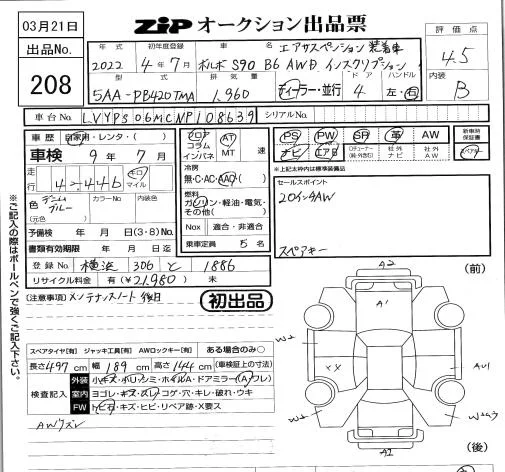 03月21日
ZIP オークション出品票
出品No.
208
年式
初年度登録
車名
エアサスペンション装着車
2022
4年7月
ボルボ S90 B6 AWD インスクリプション
型式
排気量
ドア
ハンドル
5AA-PB420TMA
1,960
ディーラー・並行
4
左・右
評価点
4.5
内装
B
車台No.
LVYPS06MCNP108639
シリアルNo.
車歴
自家用・レンタ・( )
車検
9年7月
走行
キロ
マイル
色
デニムブルー
(元色)
カラーNo
内装色
予備検 年 月 日(3・8)No.
書類有効期限 年 月 日迄
登録No
横浜 306 と 1886
リサイクル料金
有(¥21,980) 未
フロア
コラム
インパネ
AT
MT
速
冷房
無・AC・AAC
燃料
ガソリン・軽油・電気・
その他( )
Nox
適合・非適合
乗車定員
5名
PS
PW
SR
革
AW
ナビ
エアB
社外
ナビ
社外
AW
新車時
保証書
※上記太枠内は標準装備品
セールスポイント
20インチAW
スペアキー
※ご記入の際はボールペンで強くご記入下さい。
(注意事項)
メンテナンスノート後日
初出品
スペアタイヤ[有] ジャッキ工具[有] AWロックキー[有]
ある場合のみ○
長さ497cm 幅189cm 高さ144cm (車検証上の寸法)
検査記入
外装
小キズ・小シミ・ホイルA・ドアミラー(A/ワレ)
室内
ヨゴレ・キズ・スレ・コゲ・穴・キレ・破れ・ウキ
FW
トビ石・キズ・ヒビ・リペア跡・X要ス
AWクズレ
(前)
A2
A1
XX
AU1
A2
(後)